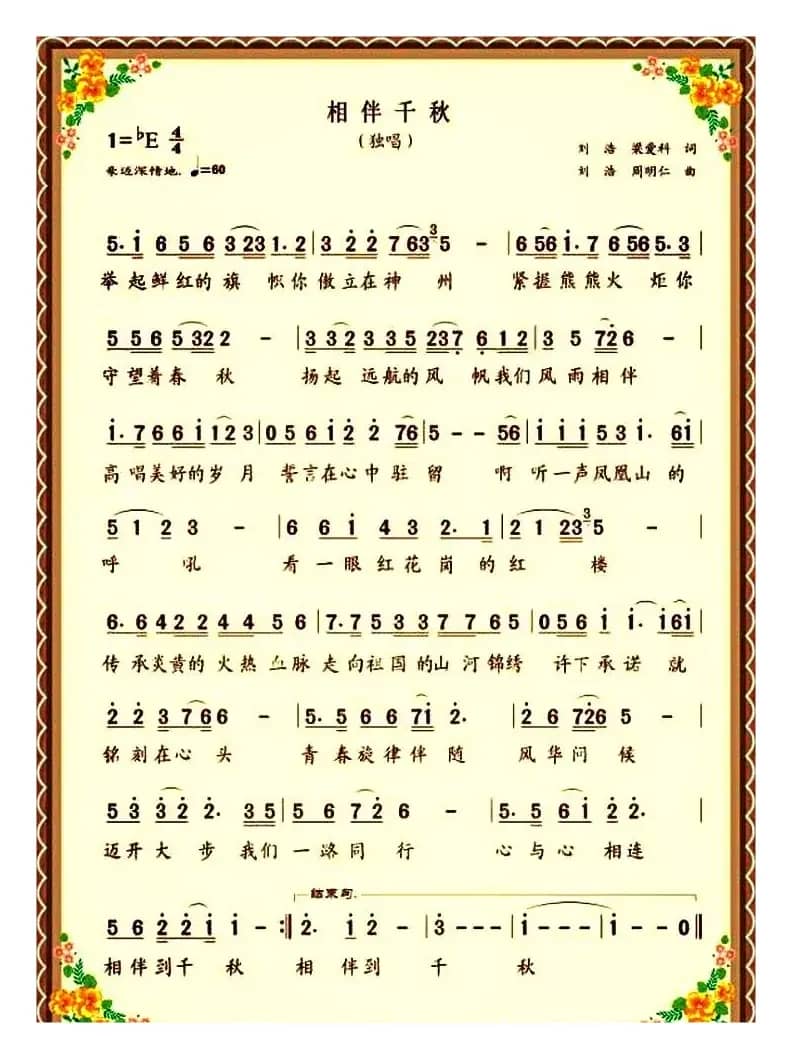 相伴千秋
1=♭E 4/4
（独唱）
刘 浩 梁爱科 词
豪迈深情地. ♩=60
刘 浩 周明仁 曲
5. i 6 5 6 3 23 1. 2 | 3 2 2 7 63 3 5 - | 6 56 i. 7 6 56 5. 3 |
举起鲜红的旗 帜你傲立在神 州 紧握熊熊火 炬你
5 5 6 5 32 2 - | 3 3 2 3 3 5 23 7 6 1 2 | 3 5 72 6 - |
守望着春 秋 扬起 远航的风 帆我们风雨相伴
i. 7 6 6 i 1 2 3 | 0 5 6 i 2 2 76 | 5 - - 56 | i i i 5 3 i. 6i |
高唱美好的岁 月 誓言在心中驻 留 啊 听一声凤凰山的
5 1 2 3 - | 6 6 i 4 3 2. 1 | 2 1 23 3 5 - |
呼 吼 看一眼红花岗的红 楼
6. 6 4 2 2 4 4 5 6 | 7. 7 5 3 3 7 7 6 5 | 0 5 6 i i i. i6i |
传承炎黄的火热血脉走向祖国的山河锦绣 许下承诺就
2 2 3 7 6 6 - | 5. 5 6 6 7i 2. | 2 6 726 5 - |
铭刻在心头 青春旋律伴随 风华问候
5 3 3 2 2. 3 5 | 5 6 7 2 6 - | 5. 5 6 i 2 2. |
迈开大步我们一路同行 心与心相连
结束句.
5 6 2 2 i i - :‖ 2. i 2 - | 3 - - - | i - - - | i - - 0 ‖
相伴到千秋 相伴到千秋